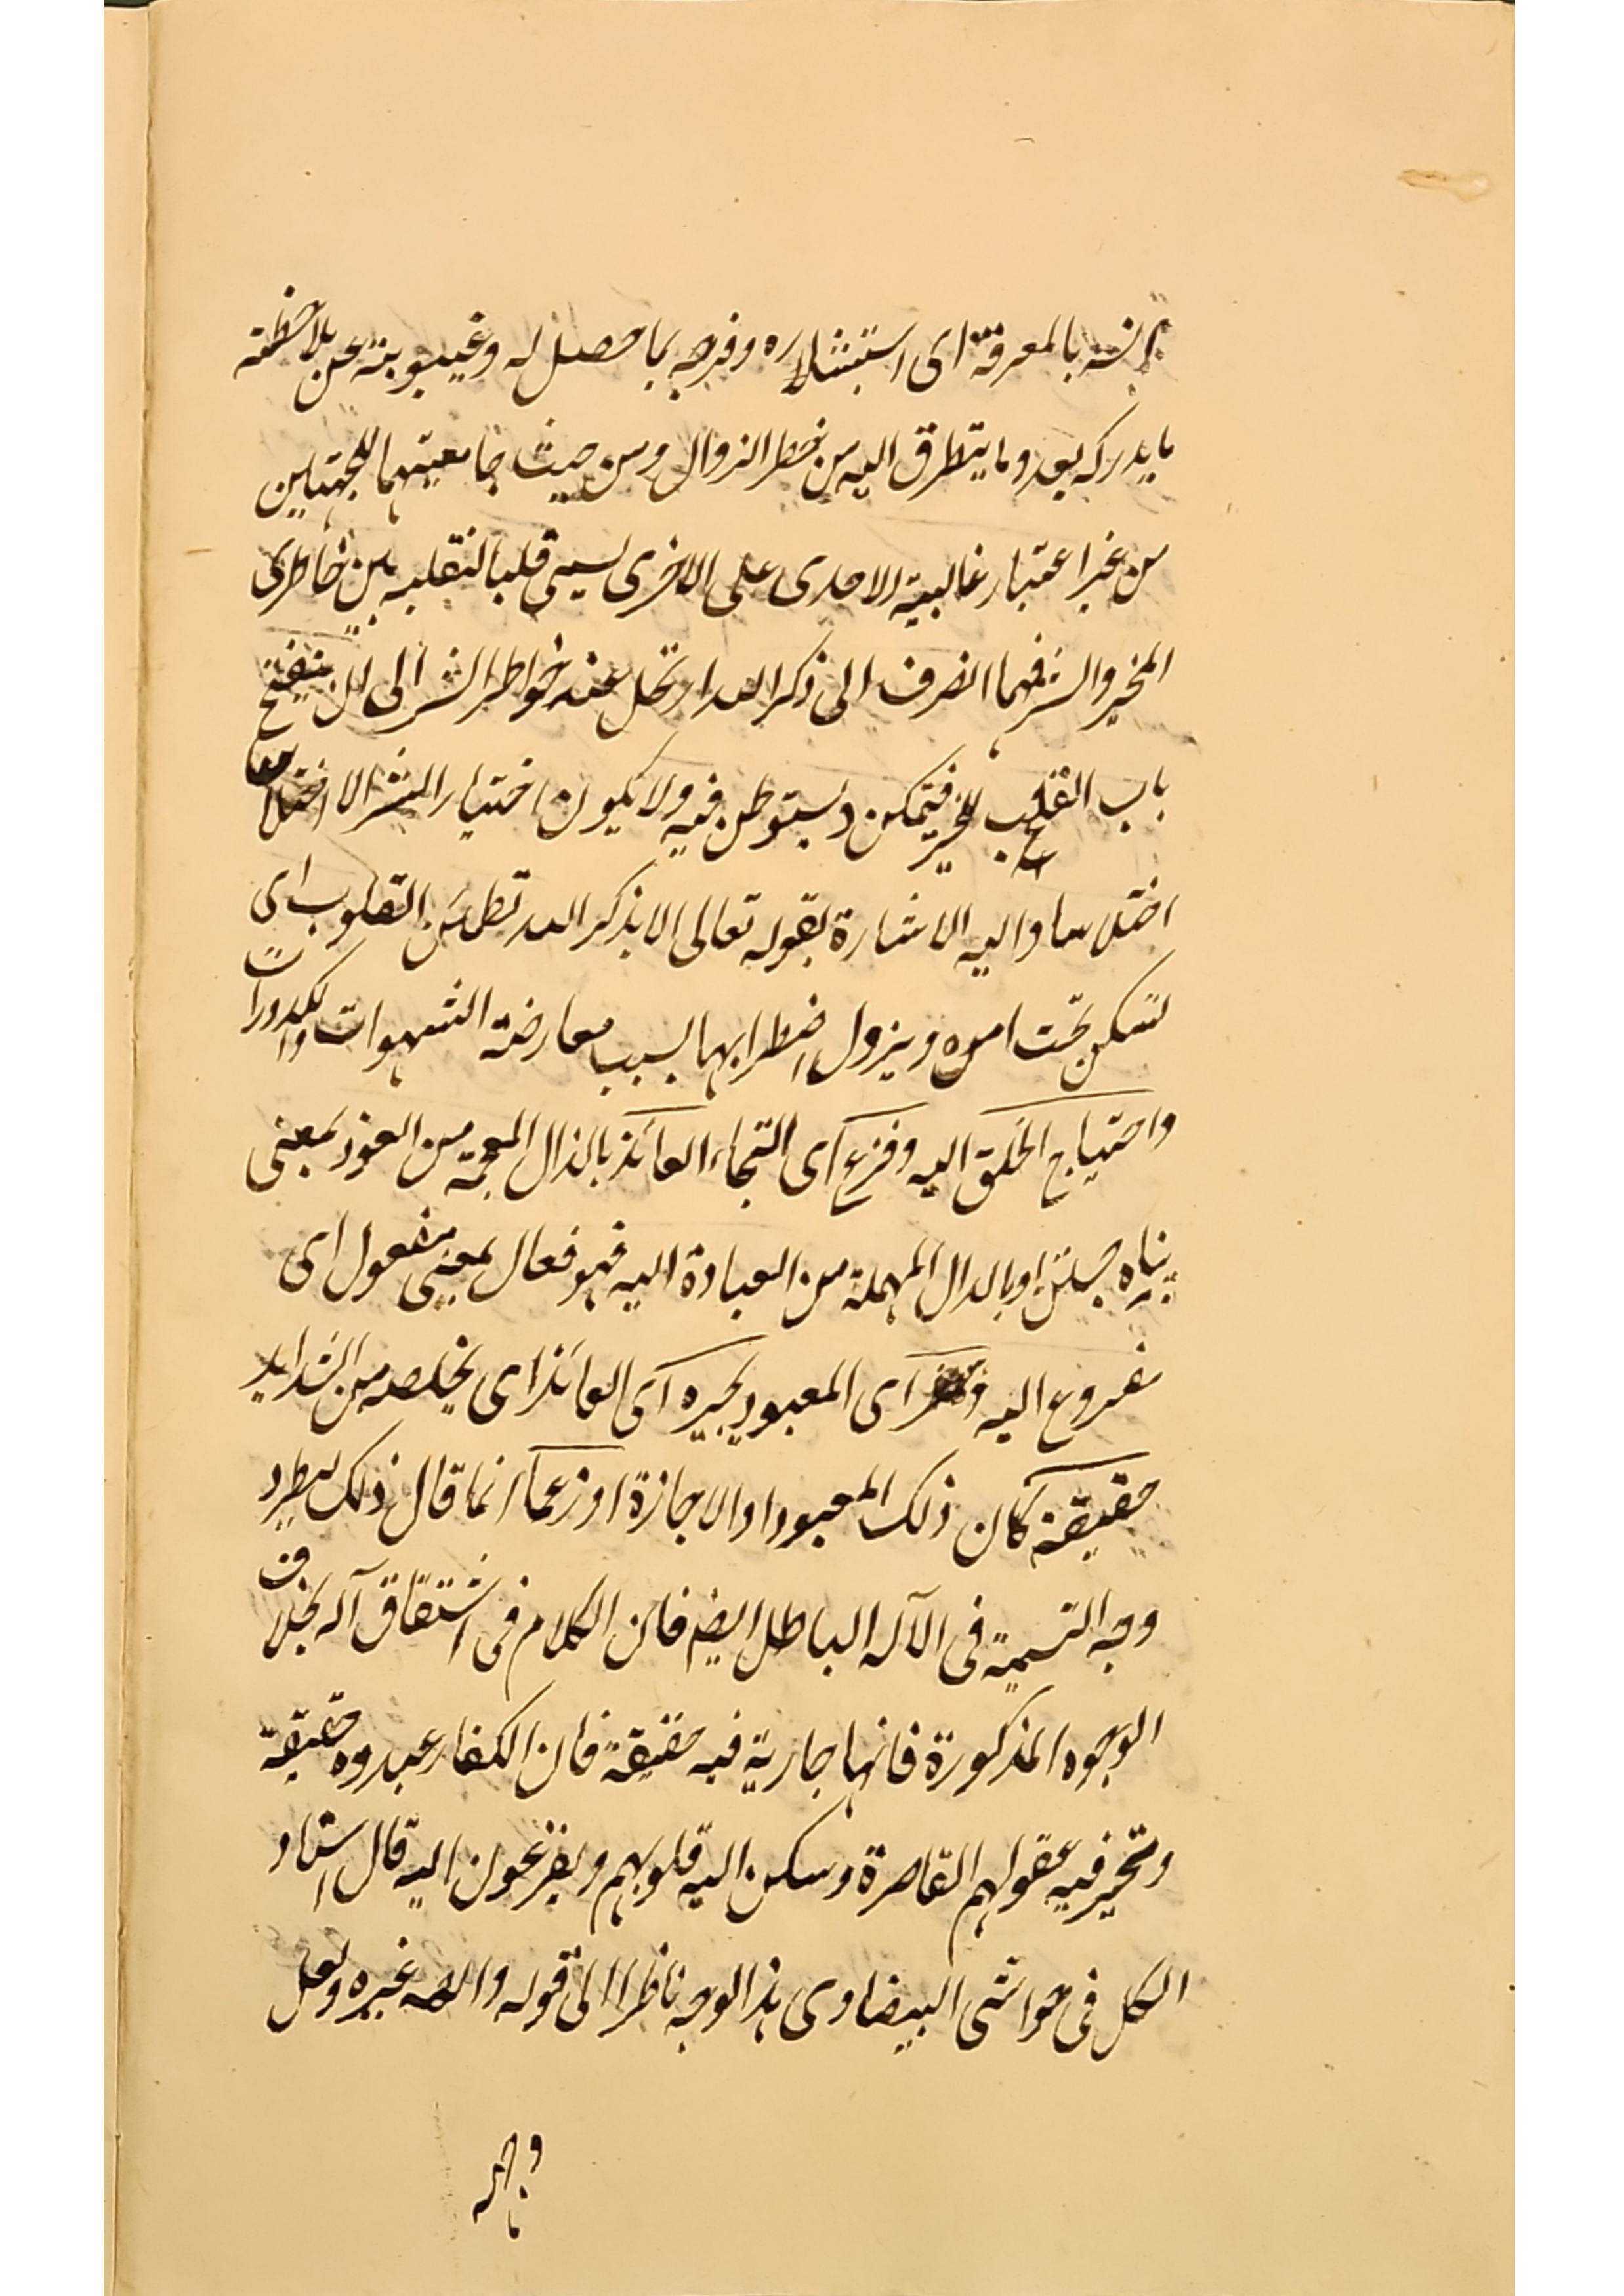 انسه بالمعرفة اى استبشاره وفرحه بما حصل له وغيبوبته عن ملاحظته
ما يدركه بعد وما يتطرق اليه من خطر الزوال ومن حيث جامعيتهما للجهتين
من غير اعتبار غالبية الاحدى على الاخرى يسمى قلبا لتقلبه بين خاطرى
الخير والشر فمهما انصرف الى ذكر الله ارتحل عنه خواطر الشر الى ان ينفتح
باب القلب للخير فيتمكن ويستوطن فيه ولا يكون اختيار الشر الا اختلاسا
اختلاسا واليه الاشارة بقوله تعالى الا بذكر الله تطمئن القلوب اى
تسكن تحت امره ويزول اضطرابها بسبب معارضة الشهوات والكدورات
واحتياج الخلق اليه وفزع اى التجاء العائذ بالذال المعجمة من العوذ بمعنى
پناه جستن او بالدال المهملة من العبادة اليه فهو فعال بمعنى مفعول اى
مفروع اليه اى المعبود يجيره اى العائذ اى يخلصه من الشدايد
حقيقة كان ذلك المعبود او الاجازة او زعما انما قال ذلك ليطرد
وجه التسمية فى الآله الباطل ايضا فان الكلام فى اشتقاق آله بخلاف
الوجوه المذكورة فانها جارية فيه حقيقة فان الكفار عبدوه حقيقة
وتحير فيه عقولهم القاصرة وسكن اليه قلوبهم ويفزعون اليه قال استاد
الكل فى حواشى البيضاوى هذا الوجه ناظر الى قوله واله غيره ولعل